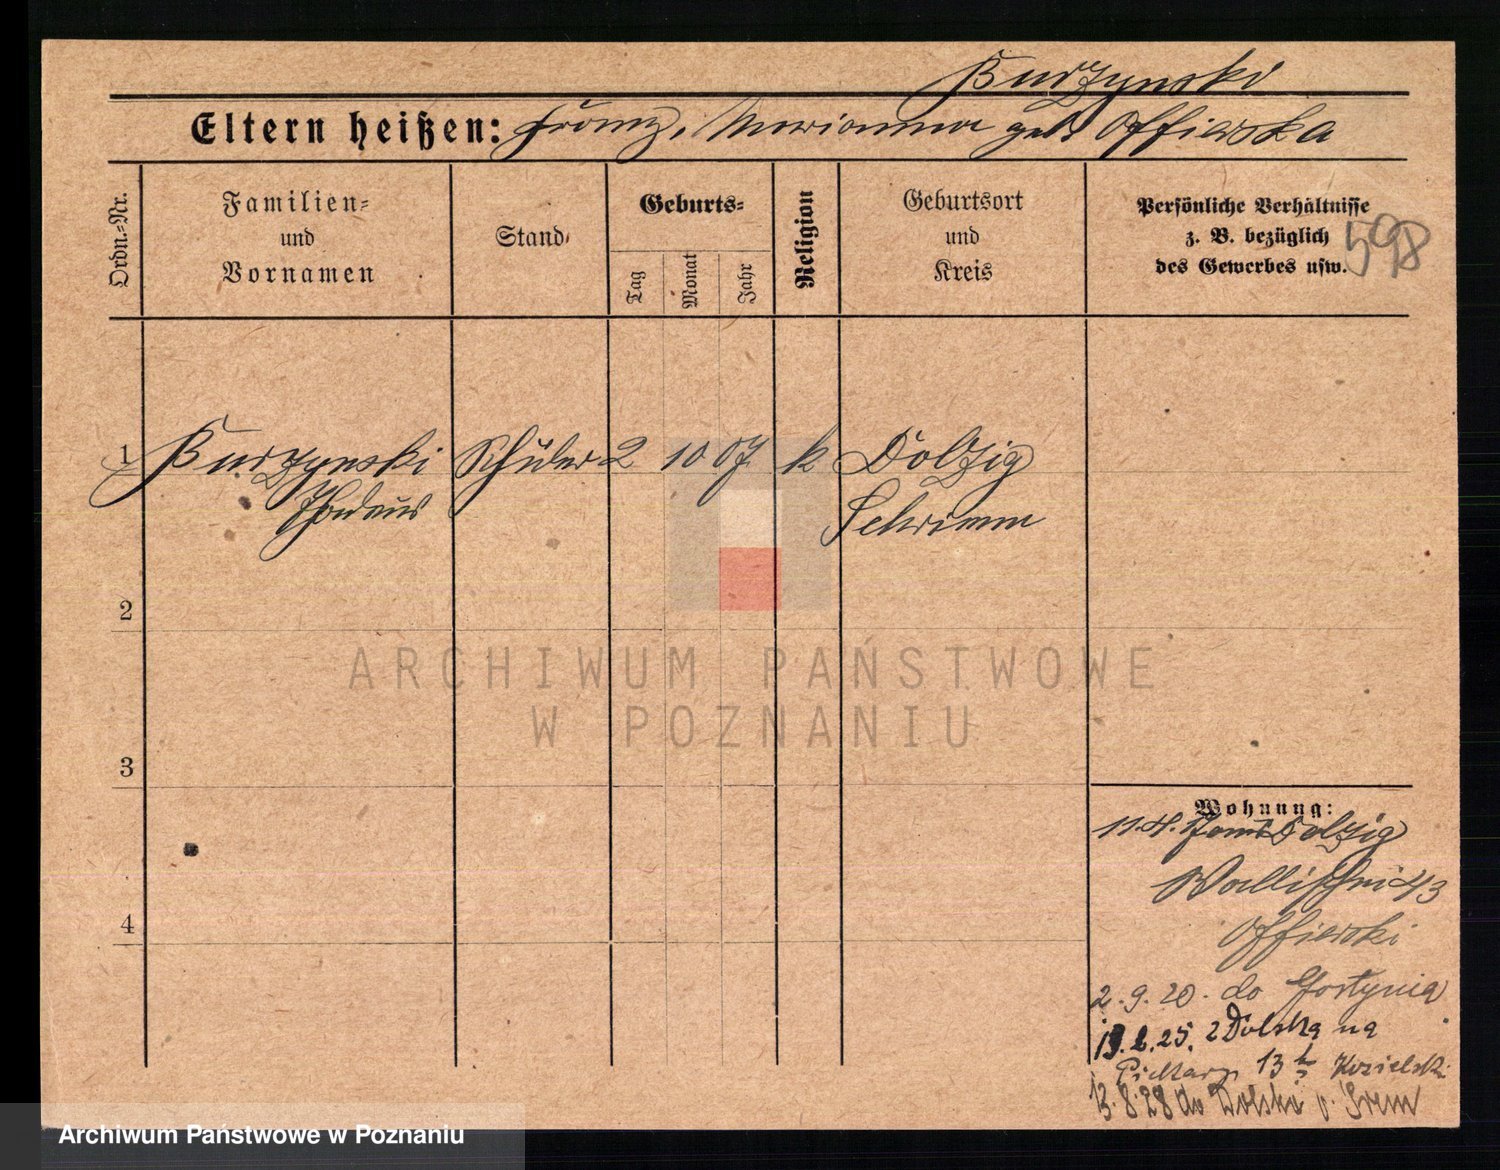 Burzynski
Eltern heißen: Franz, Marianna geb. Offierska
Ordn.=Nr.
Familien=
und
Vornamen
Stand
Geburts=
Tag
Monat
Jahr
Religion
Geburtsort
und
Kreis
Persönliche Verhältnisse
z. B. bezüglich
des Gewerbes usw.
598
1 Burzynski Schüler 2 10 07 k Dolzig
Thadäus Schrimm
2
3
4
Wohnung:
Dolzig
Wallischei 43
Offierski
2.9.20. do Gostynia
19.2.25. z Dolska na
Piekary 13 Kozielski
13.8.28 do Dolska p. Śrem
ARCHIWUM PAŃSTWOWE
W POZNANIU
Archiwum Państwowe w Poznaniu